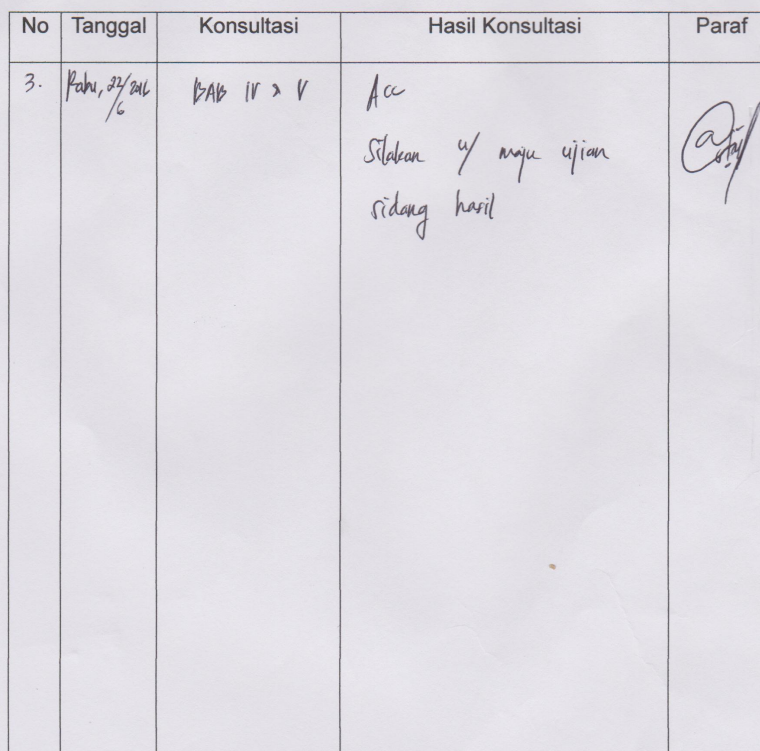 No Tanggal Konsultasi Hasil Konsultasi Paraf
3. Rabu, 22/6 2016 BAB IV & V Acc
Silakan u/ maju ujian
sidang hasil